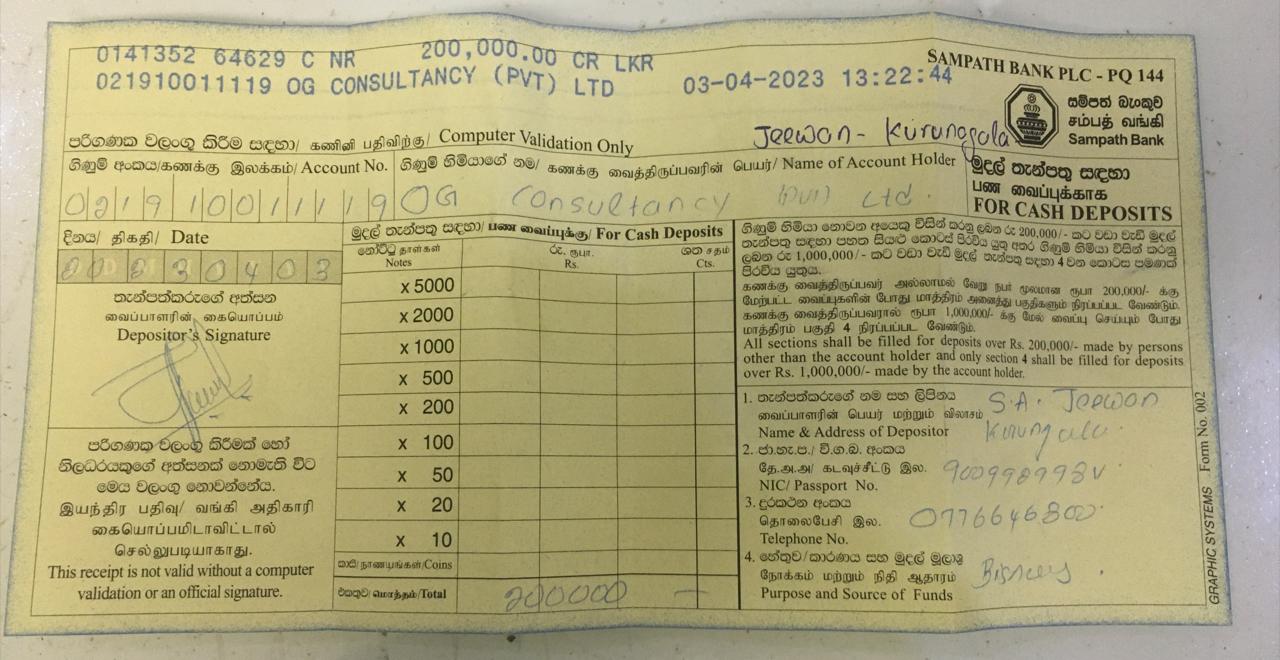 0141352 64629 C NR 200,000.00 CR LKR
021910011119 OG CONSULTANCY (PVT) LTD 03-04-2023 13:22:44
SAMPATH BANK PLC - PQ 144
සම්පත් බැංකුව
சம்பத் வங்கி
Sampath Bank
පරිගණක වලංගු කිරීම සඳහා/ கணினி பதிவிற்கு/ Computer Validation Only
Jeewan - Kurunagala
ගිණුම් අංකය/கணக்கு இலக்கம்/ Account No.
021910011119
ගිණුම් හිමියාගේ නම/ கணக்கு வைத்திருப்பவரின் பெயர்/ Name of Account Holder
OG Consultancy (Pvt) Ltd.
මුදල් තැන්පතු සඳහා
பண வைப்புக்காக
FOR CASH DEPOSITS
දිනය/ திகதி/ Date
20230403
තැන්පත්කරුගේ අත්සන
வைப்பாளரின் கையொப்பம்
Depositor's Signature
පරිගණක වලංගු කිරීමක් හෝ
නිලධරයකුගේ අත්සනක් නොමැති විට
මෙය වලංගු නොවන්නේය.
இயந்திர பதிவு/ வங்கி அதிகாரி
கையொப்பமிடாவிட்டால்
செல்லுபடியாகாது.
This receipt is not valid without a computer
validation or an official signature.
මුදල් තැන්පතු සඳහා/ பண வைப்புக்கு/ For Cash Deposits
නෝට්ටු தாள்கள் රු. ரூபா. ශත சதம்
Notes Rs. Cts.
x 5000
x 2000
x 1000
x 500
x 200
x 100
x 50
x 20
x 10
කාසි/நாணயங்கள்/Coins
එකතුව/மொத்தம்/Total 200000 —
ගිණුම් හිමියා නොවන අයෙකු විසින් කරනු ලබන රු 200,000/- කට වඩා වැඩි මුදල්
තැන්පතු සඳහා පහත සියළු කොටස් පිරවිය යුතු අතර ගිණුම් හිමියා විසින් කරනු
ලබන රු 1,000,000/- කට වඩා වැඩි මුදල් තැන්පතු සඳහා 4 වන කොටස පමණක්
පිරවිය යුතුය.
கணக்கு வைத்திருப்பவர் அல்லாமல் வேறு நபர் மூலமான ரூபா 200,000/- க்கு
மேற்பட்ட வைப்புகளின் போது மாத்திரம் அனைத்து பகுதிகளும் நிரப்பப்பட வேண்டும்.
கணக்கு வைத்திருப்பவரால் ரூபா 1,000,000/- க்கு மேல் வைப்பு செய்யும் போது
மாத்திரம் பகுதி 4 நிரப்பப்பட வேண்டும்.
All sections shall be filled for deposits over Rs. 200,000/- made by persons
other than the account holder and only section 4 shall be filled for deposits
over Rs. 1,000,000/- made by the account holder.
1. තැන්පත්කරුගේ නම සහ ලිපිනය
வைப்பாளரின் பெயர் மற்றும் விலாசம்
Name & Address of Depositor
S.A. Jeewan
Kurungala.
2. ජා.හැ.ප./ වි.ග.බ. අංකය
தே.அ.அ/ கடவுச்சீட்டு இல.
NIC/ Passport No.
3. දුරකථන අංකය
தொலைபேசி இல.
Telephone No.
4. හේතුව/කාරණය සහ මුදල් මූලාශ්‍ර
நோக்கம் மற்றும் நிதி ஆதாரம்
Purpose and Source of Funds
GRAPHIC SYSTEMS Form No. 002